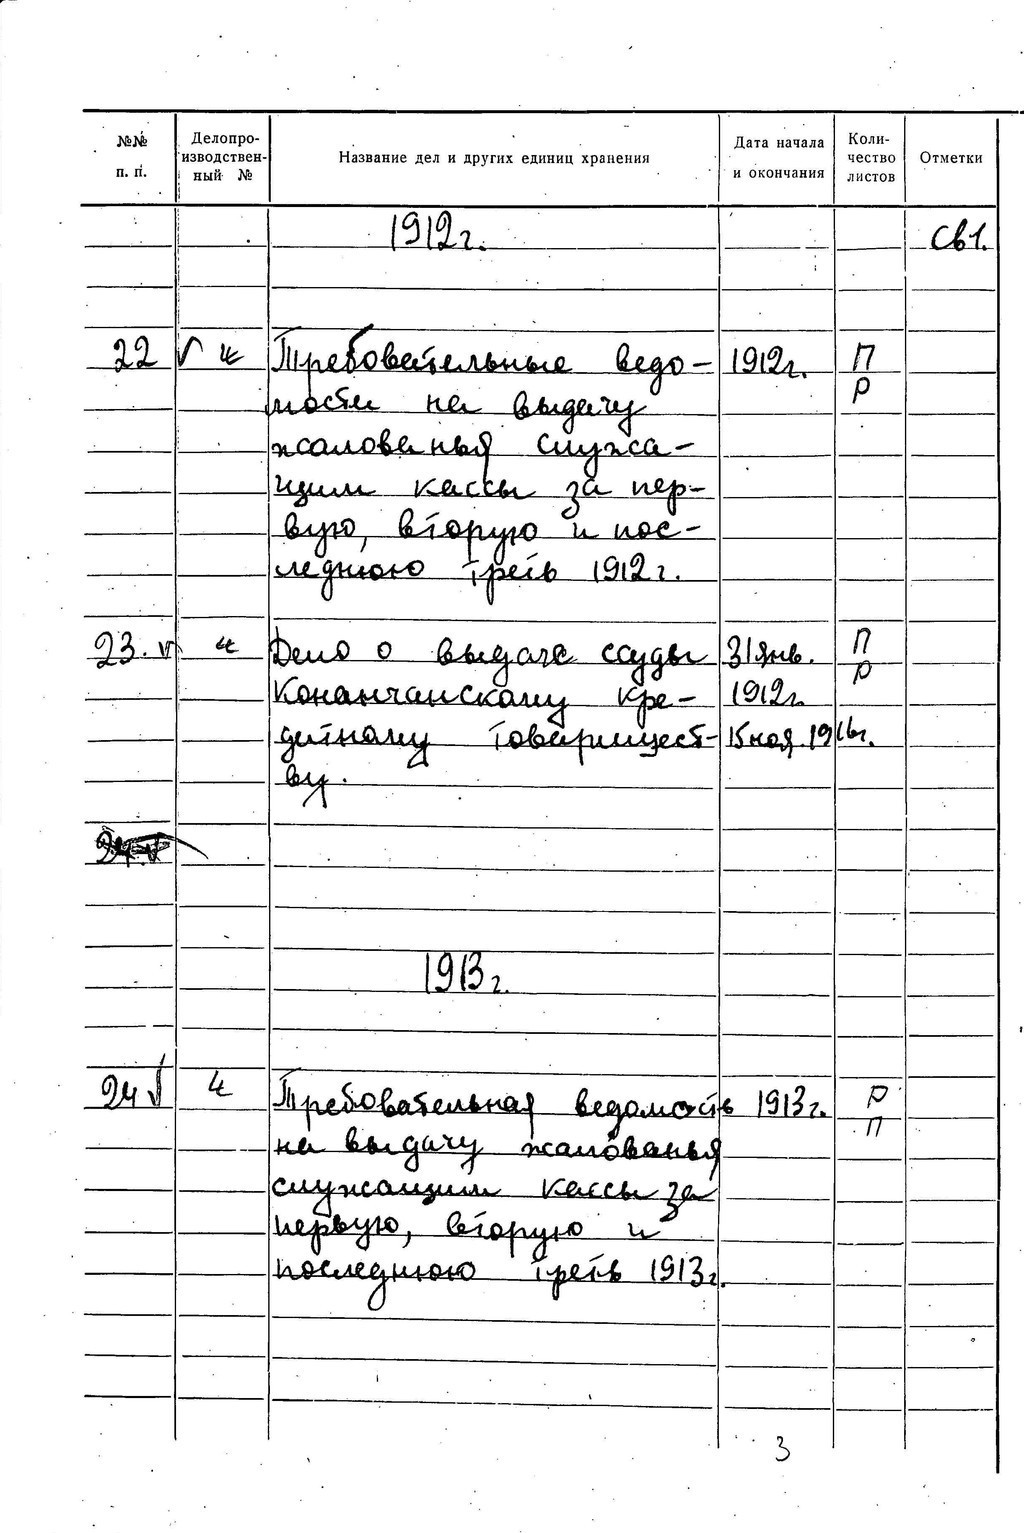 №№ п. п. Делопроизводственный № Название дел и других единиц хранения Дата начала и окончания Количество листов Отметки
1912 г. св 1.
22 √ Требовательные ведо- 1912 г. П
мости на выдачу Р
жалованья служа-
щим кассы за пер-
вую, вторую и пос-
леднюю треть 1912 г.
23. Дело о выдаче ссуды 31 янв. П
Кре- 1912 г. Р
дитному товарищест- 15 ноя. 1916 г.
ву.
24
1913 г.
24 √ Требовательная ведомость 1913 г. Р
на выдачу жалованья П
служащим кассы за
первую, вторую и
последнюю треть 1913 г.
3